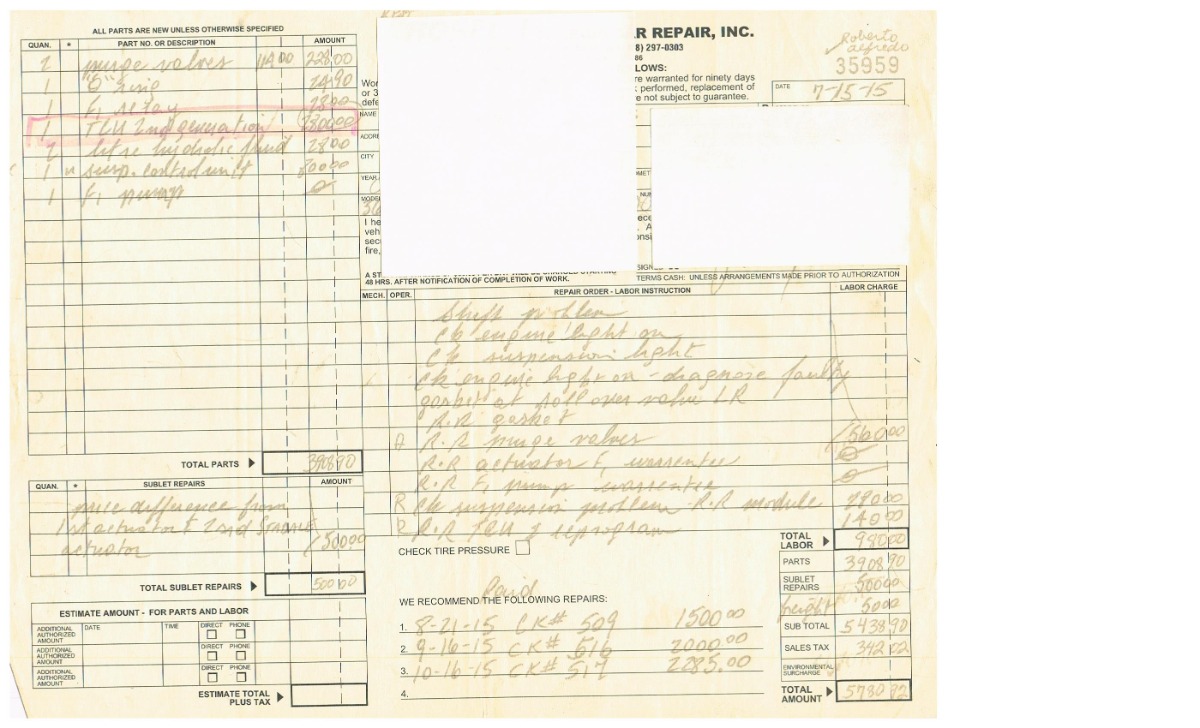 ALL PARTS ARE NEW UNLESS OTHERWISE SPECIFIED
QUAN. * PART NO. OR DESCRIPTION AMOUNT
2 purge valves 114.00 228.00
1 "O" ring 24.90
1 F1 relay 28.00
1 TCU 2nd generation
2 litre fluid 28.00
1 susp. control unit
1 F1 pump
TOTAL PARTS 3908.90
QUAN. * SUBLET REPAIRS AMOUNT
price difference from
1st actuator & 2nd
actuator 500.00
TOTAL SUBLET REPAIRS 500.00
ESTIMATE AMOUNT - FOR PARTS AND LABOR
ADDITIONAL AUTHORIZED AMOUNT DATE TIME DIRECT PHONE
ADDITIONAL AUTHORIZED AMOUNT DIRECT PHONE
ADDITIONAL AUTHORIZED AMOUNT DIRECT PHONE
ESTIMATE TOTAL PLUS TAX
R REPAIR, INC.
8) 297-0303
86
LLOWS:
re warranted for ninety days
performed, replacement of
re not subject to guarantee.
Roberto
alfredo
35959
DATE 7-15-15
Wor
or 3
defe
NAME
ADDRE
CITY
YEAR
MODE
I he
veh
sec
fire,
A ST
48 HRS. AFTER NOTIFICATION OF COMPLETION OF WORK.
TERMS CASH: UNLESS ARRANGEMENTS MADE PRIOR TO AUTHORIZATION
MECH. OPER. REPAIR ORDER - LABOR INSTRUCTION LABOR CHARGE
Shift problem
Ck engine light on
Ck suspension light
Ck engine light on - diagnose faulty
gasket at roll over valve LR
R.R gasket
R.R purge valves 560.00
R.R actuator F1 warrentee
R.R F1 pump warrentee
R Ck suspension problem - R.R module 280.00
R R.R TCU & reprogram 140.00
CHECK TIRE PRESSURE
TOTAL LABOR 980.00
PARTS 3908.90
SUBLET REPAIRS 500.00
freight 50.00
SUB TOTAL 5438.90
SALES TAX 342.02
ENVIRONMENTAL SURCHARGE
TOTAL AMOUNT 5780.92
Paid
WE RECOMMEND THE FOLLOWING REPAIRS:
1. 8-21-15 CK# 509 1500.00
2. 9-16-15 CK# 516 2000.00
3. 10-16-15 CK# 517 2285.00
4.